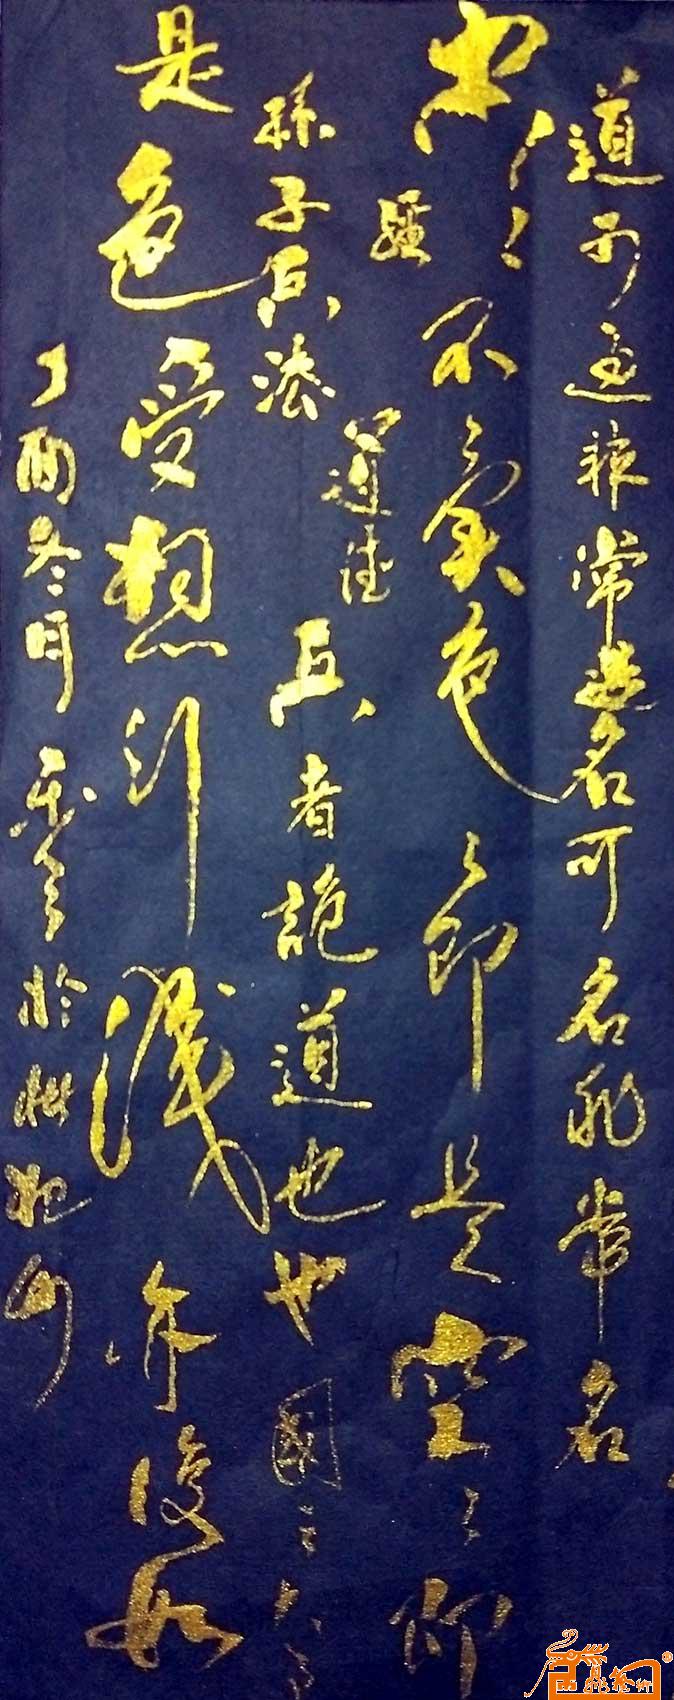 道可道非常道名可名非常名
空不異色色即是空空即
經
道德
孫子兵法
兵者詭道也 國之大
是色受想行識亦復如
丁酉冬月 於杭州